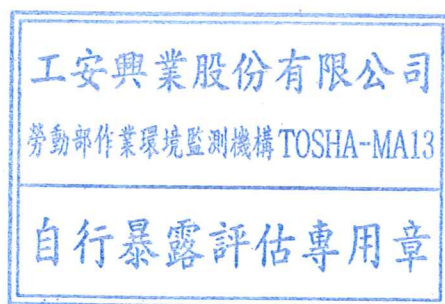 工安興業股份有限公司
勞動部作業環境監測機構TOSHA-MA13
自行暴露評估專用章